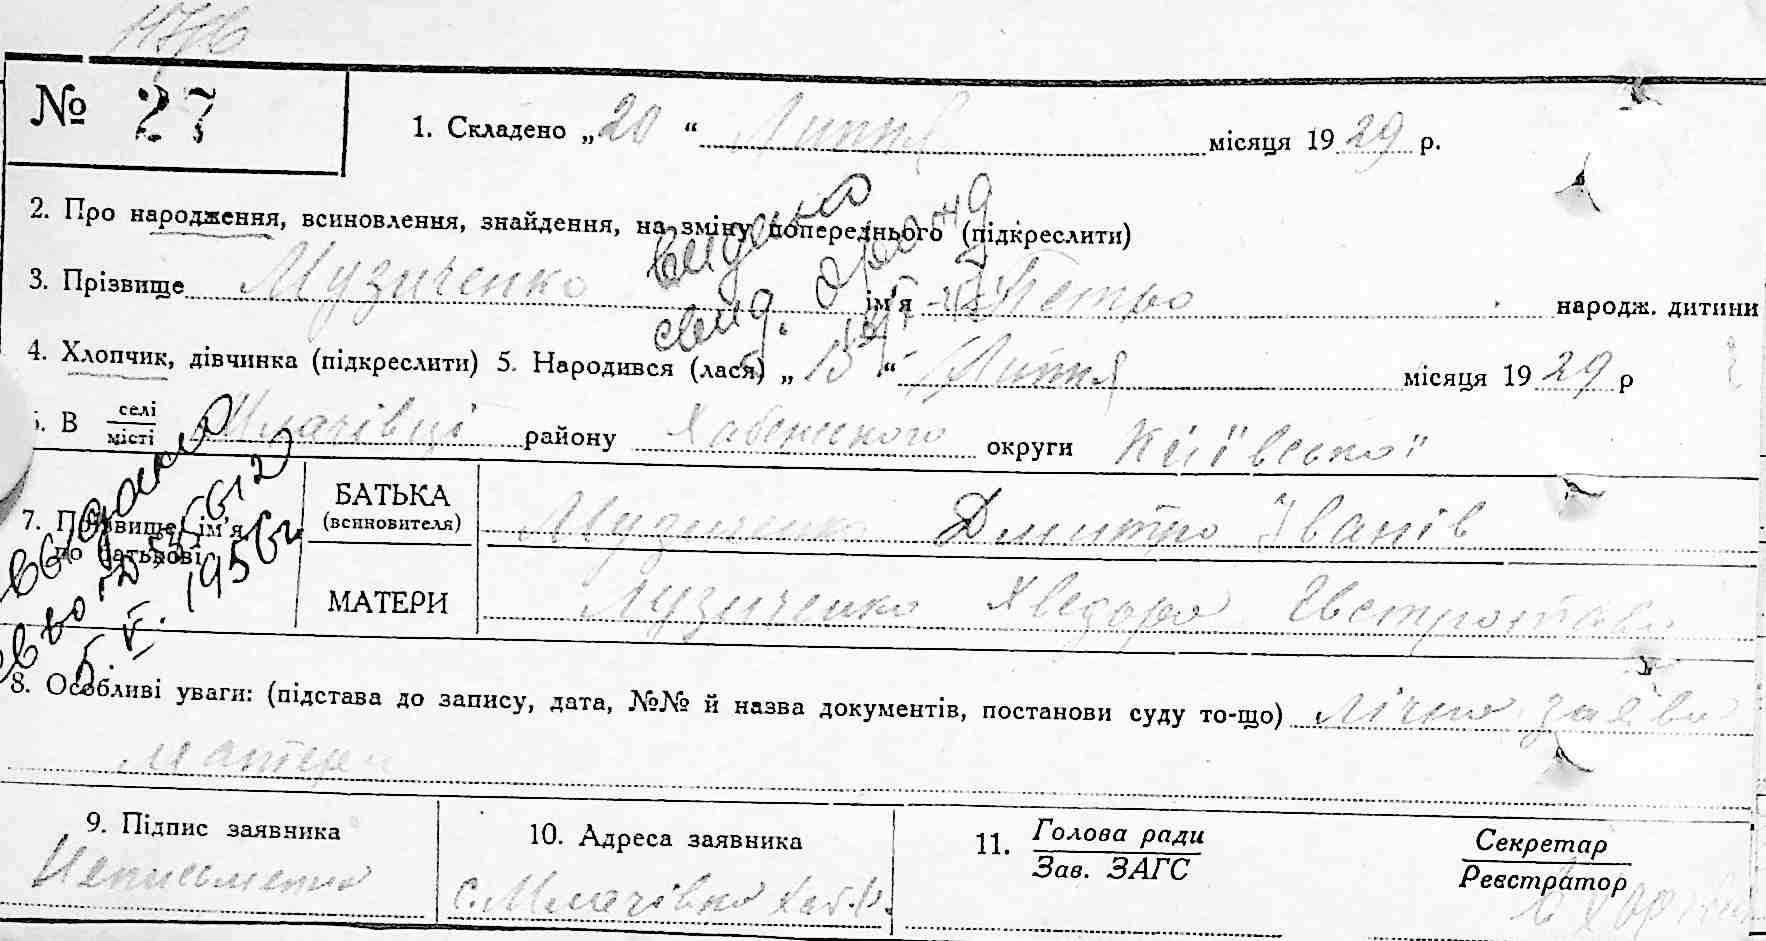 № 27
1. Складено „20“ Липня місяця 1929 р.
2. Про народження, всиновлення, знайдення, на зміну попереднього (підкреслити)
3. Прізвище Музиченко ім'я Петро народж. дитини
4. Хлопчик, дівчинка (підкреслити) 5. Народився (лася) „13“ Липня місяця 1929 р
В селі
місті
Млачівці району Хабенського округи Київської
7. Прізвище, ім'я по батькові
БАТЬКА
(всиновителя)
Музиченко Дмитро Іванів
МАТЕРИ
Музиченко Хведора
8. Особливі уваги: (підстава до запису, дата, №№ й назва документів, постанови суду то-що) лічна заява
матери
9. Підпис заявника
Неписьменна
10. Адреса заявника
с. Млачівка Хаб. р.
11. Голова ради
Зав. ЗАГС
Секретар
Реєстратор
видано
свид.
5. V. 1956 г.